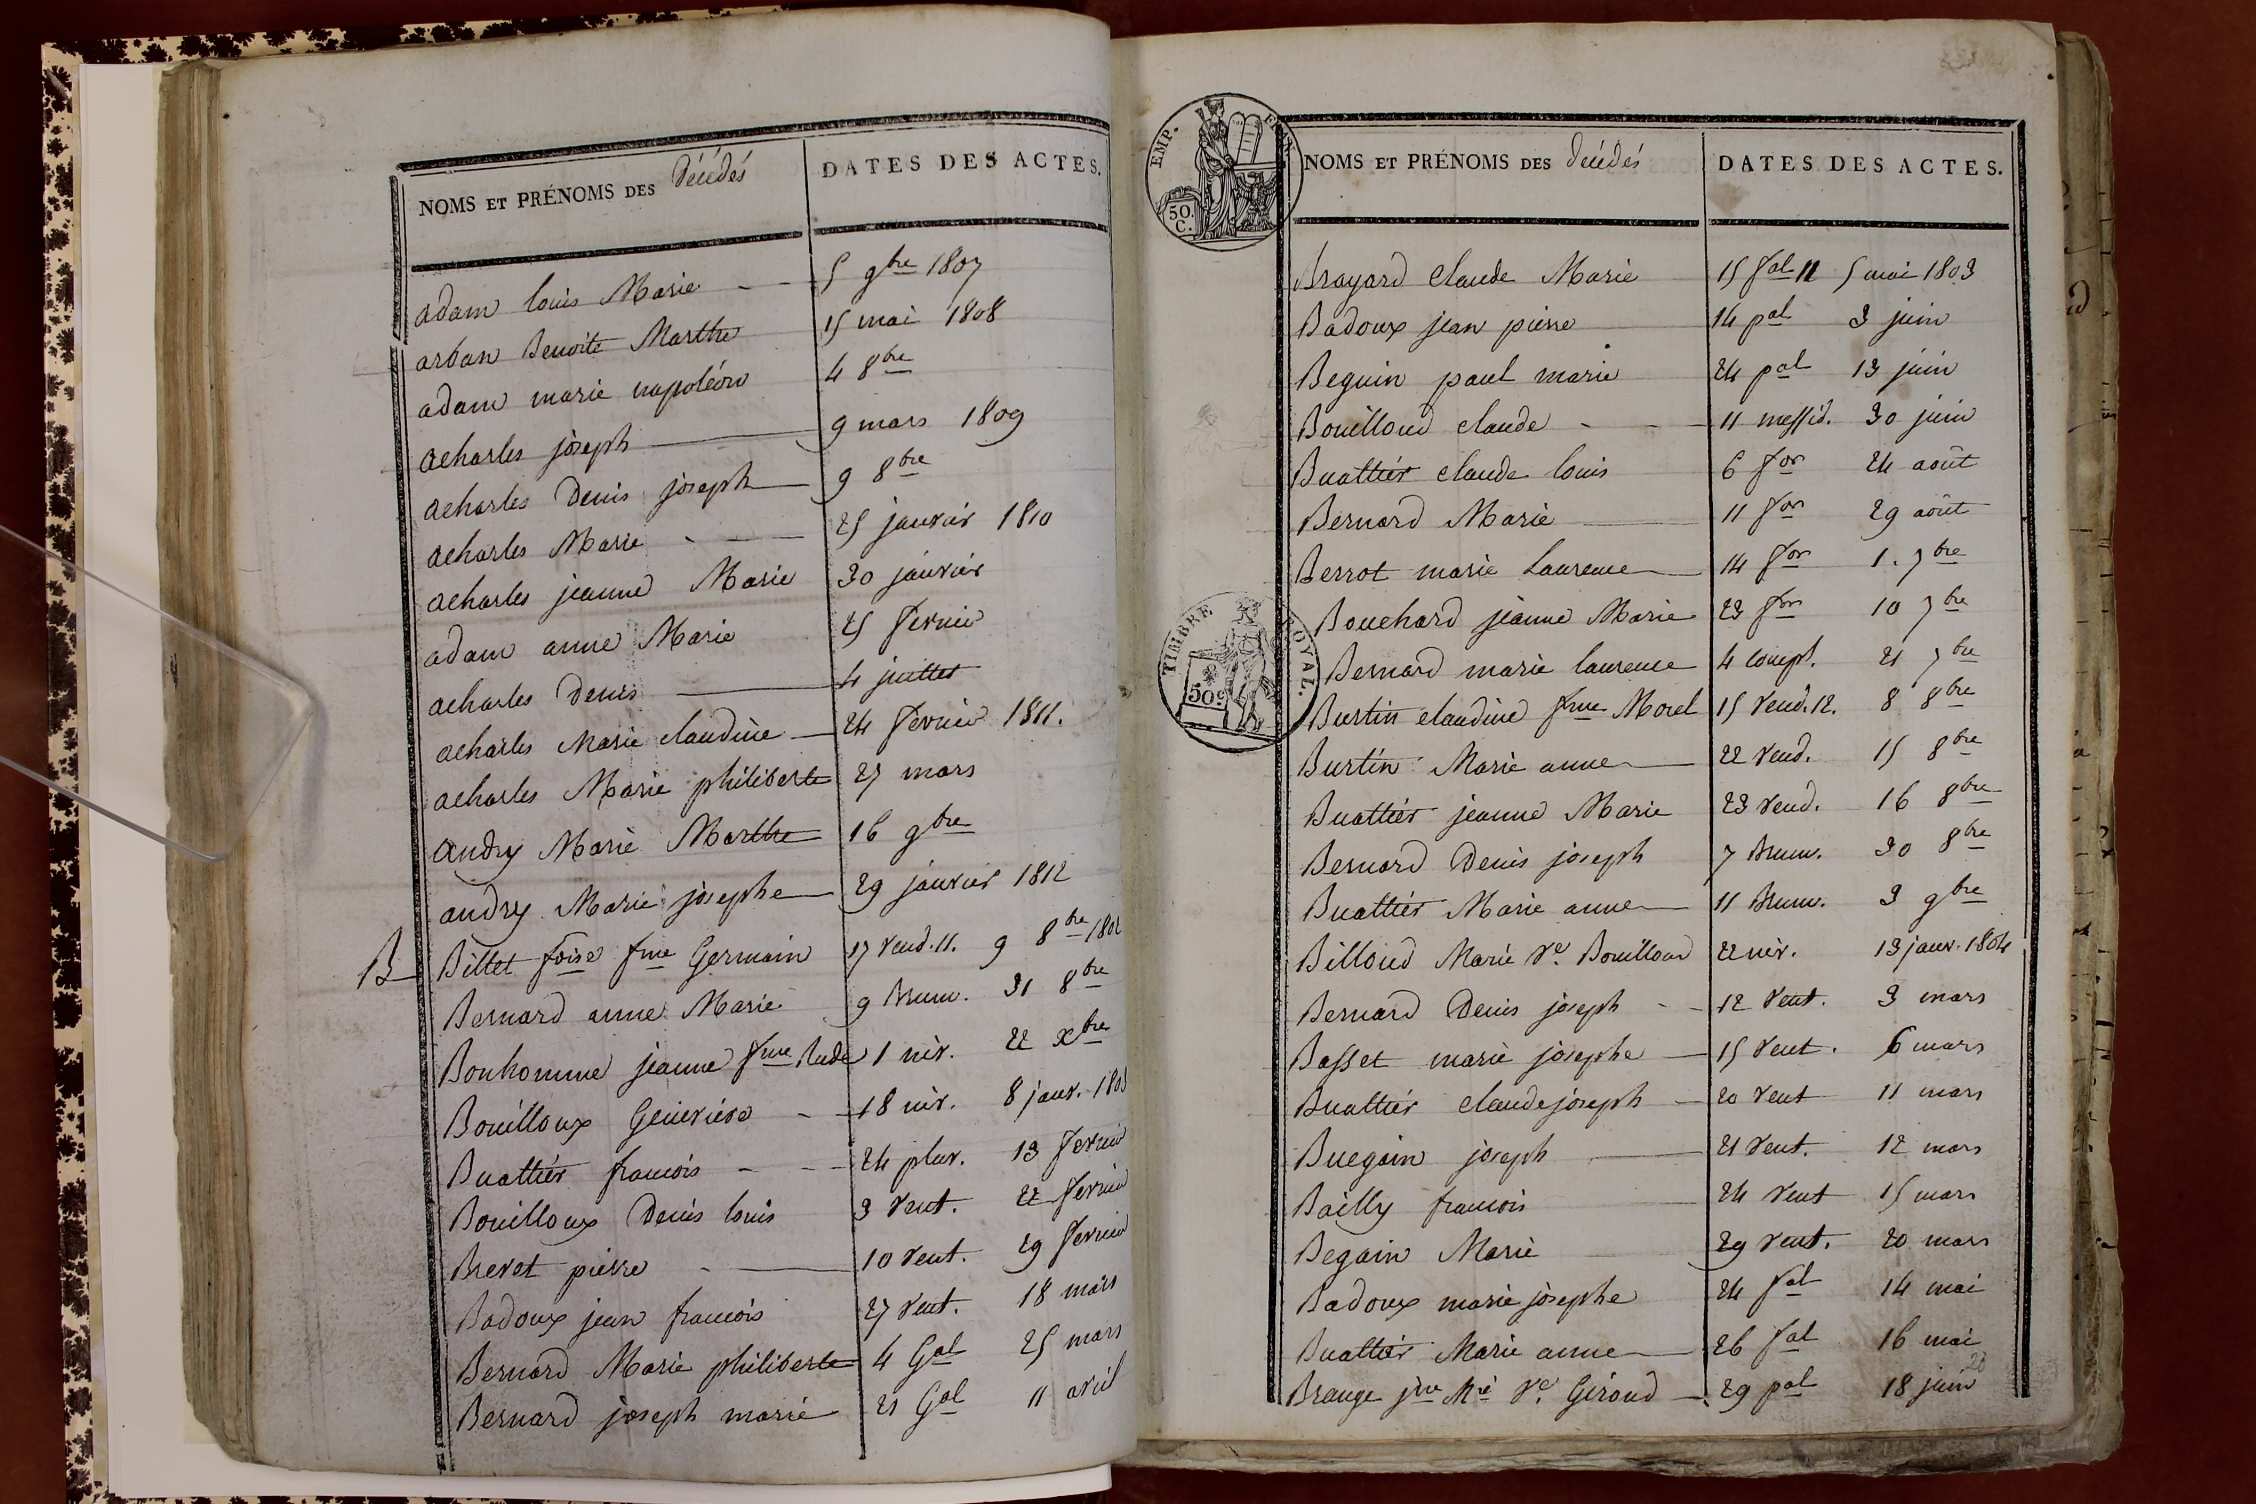 NOMS ET PRÉNOMS DES Décédés DATES DES ACTES.
adam louis Marie 5 9bre 1807
arban Benoite Marthe 15 mai 1808
adam marie napoléon 4 8bre
acharles joseph 9 mars 1809
acharles Denis joseph 9 8bre
acharles Marie 25 janvier 1810
acharles jeanne Marie 30 janvier
adam anne Marie 25 fevrier
acharles Denis 4 juillet
acharles Marie claudine 24 fevrier 1811.
acharles Marie philiberte 27 mars
andry Marie Marthe 16 9bre
andry Marie josephe 29 janvier 1812
B Billet foise fme Germain 17 vend. 11. 9 8bre 1802
Bernard anne Marie 9 Brum. 31 8bre
Bonhomme jeanne fme Rude 1 niv. 22 xbre
Bouilloux Genevieve 18 niv. 8 janv. 1803
Buattier francois 24 pluv. 13 fevrier
Bouilloux Denis louis 3 vent. 22 fevrier
Brevet pierre 10 vent. 29 fevrier
Badoux jean francois 27 vent. 18 mars
Bernard Marie philiberte 4 Gal 25 mars
Bernard joseph marie 21 Gal 11 avril
EMP. FRAN.
50. C.
NOMS ET PRÉNOMS DES Décédés DATES DES ACTES.
Brayard Claude Marie 15 fal 11 5 mai 1803
Badoux jean pierre 14 pal 3 juin
Beguin paul marie 24 pal 13 juin
Bouilloud claude 11 messid. 30 juin
Buattier claude louis 6 for 24 août
Bernard Marie 11 for 29 août
Berrot marie Laurence 14 for 1. 7bre
Bouchard jeanne Marie 23 for 10 7bre
TIMBRE ROYAL.
50c
Bernard marie laurence 4 compl. 21 7bre
Burtin claudine fme Morel 15 vend. 12. 8 8bre
Burtin Marie anne 22 vend. 15 8bre
Buattier jeanne Marie 23 vend. 16 8bre
Bernard Denis joseph 7 Brum. 30 8bre
Buattier Marie anne 11 Brum. 3 9bre
Billoud Marie ve. Bouilloud 22 niv. 13 janv. 1804
Bernard Denis joseph 12 vent. 3 mars
Basset marie josephe 15 vent. 6 mars
Buattier claude joseph 20 vent 11 mars
Buegain joseph 21 vent. 12 mars
Bailly francois 24 vent 15 mars
Begain Marie 29 vent. 20 mars
Badoux marie josephe 24 fal 14 mai
Buattier Marie anne 26 fal 16 mai
Brange jne Mie ve. Giroud 29 pal 18 juin